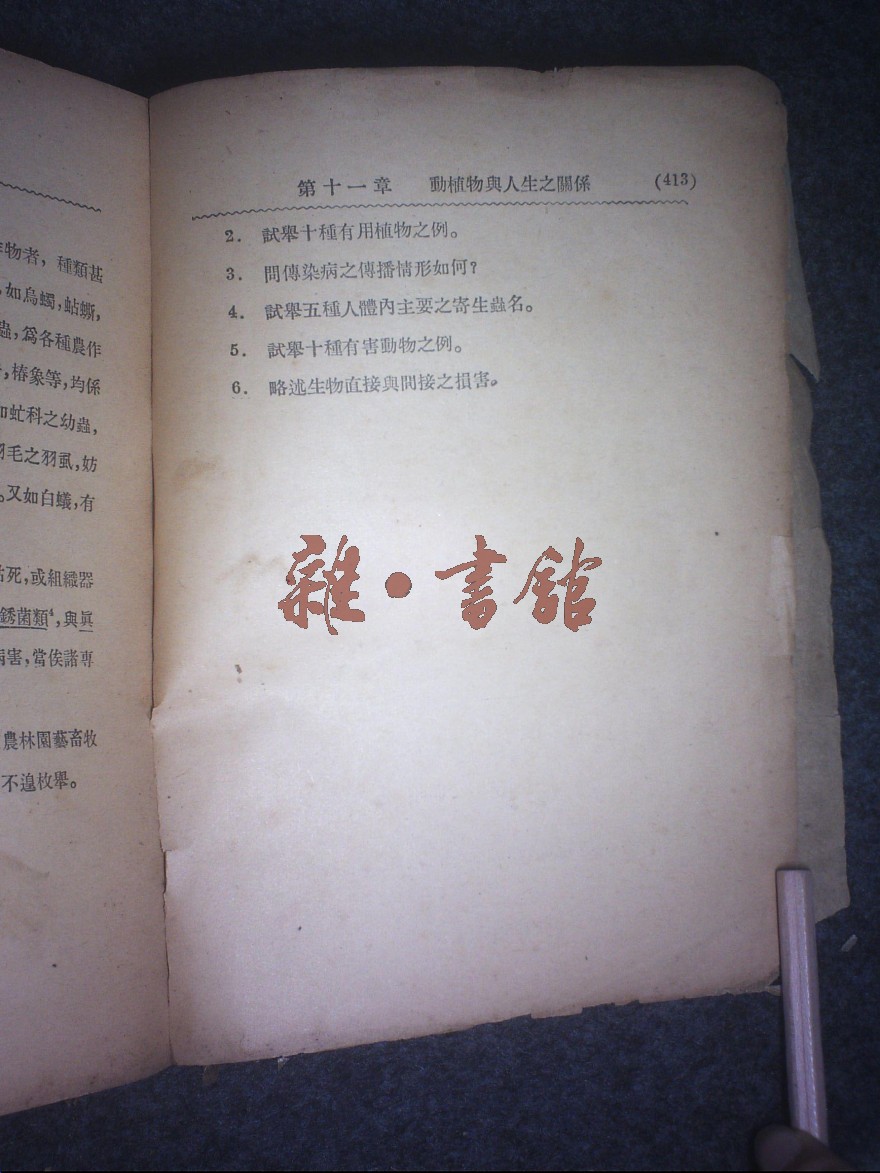 物者，種類甚
，如烏蠋，蛅蟖，
蟲，爲各種農作
，椿象等，均係
如虻科之幼蟲，
羽毛之羽虱，妨
。又如白蟻，有
枯死，或組織器
銹菌類，與眞
病害，當俟諸專
農林園藝畜牧
不遑枚舉。
第十一章 動植物與人生之關係 (413)
2. 試舉十種有用植物之例。
3. 問傳染病之傳播情形如何？
4. 試舉五種人體內主要之寄生蟲名。
5. 試舉十種有害動物之例。
6. 略述生物直接與間接之損害。
雜·書館